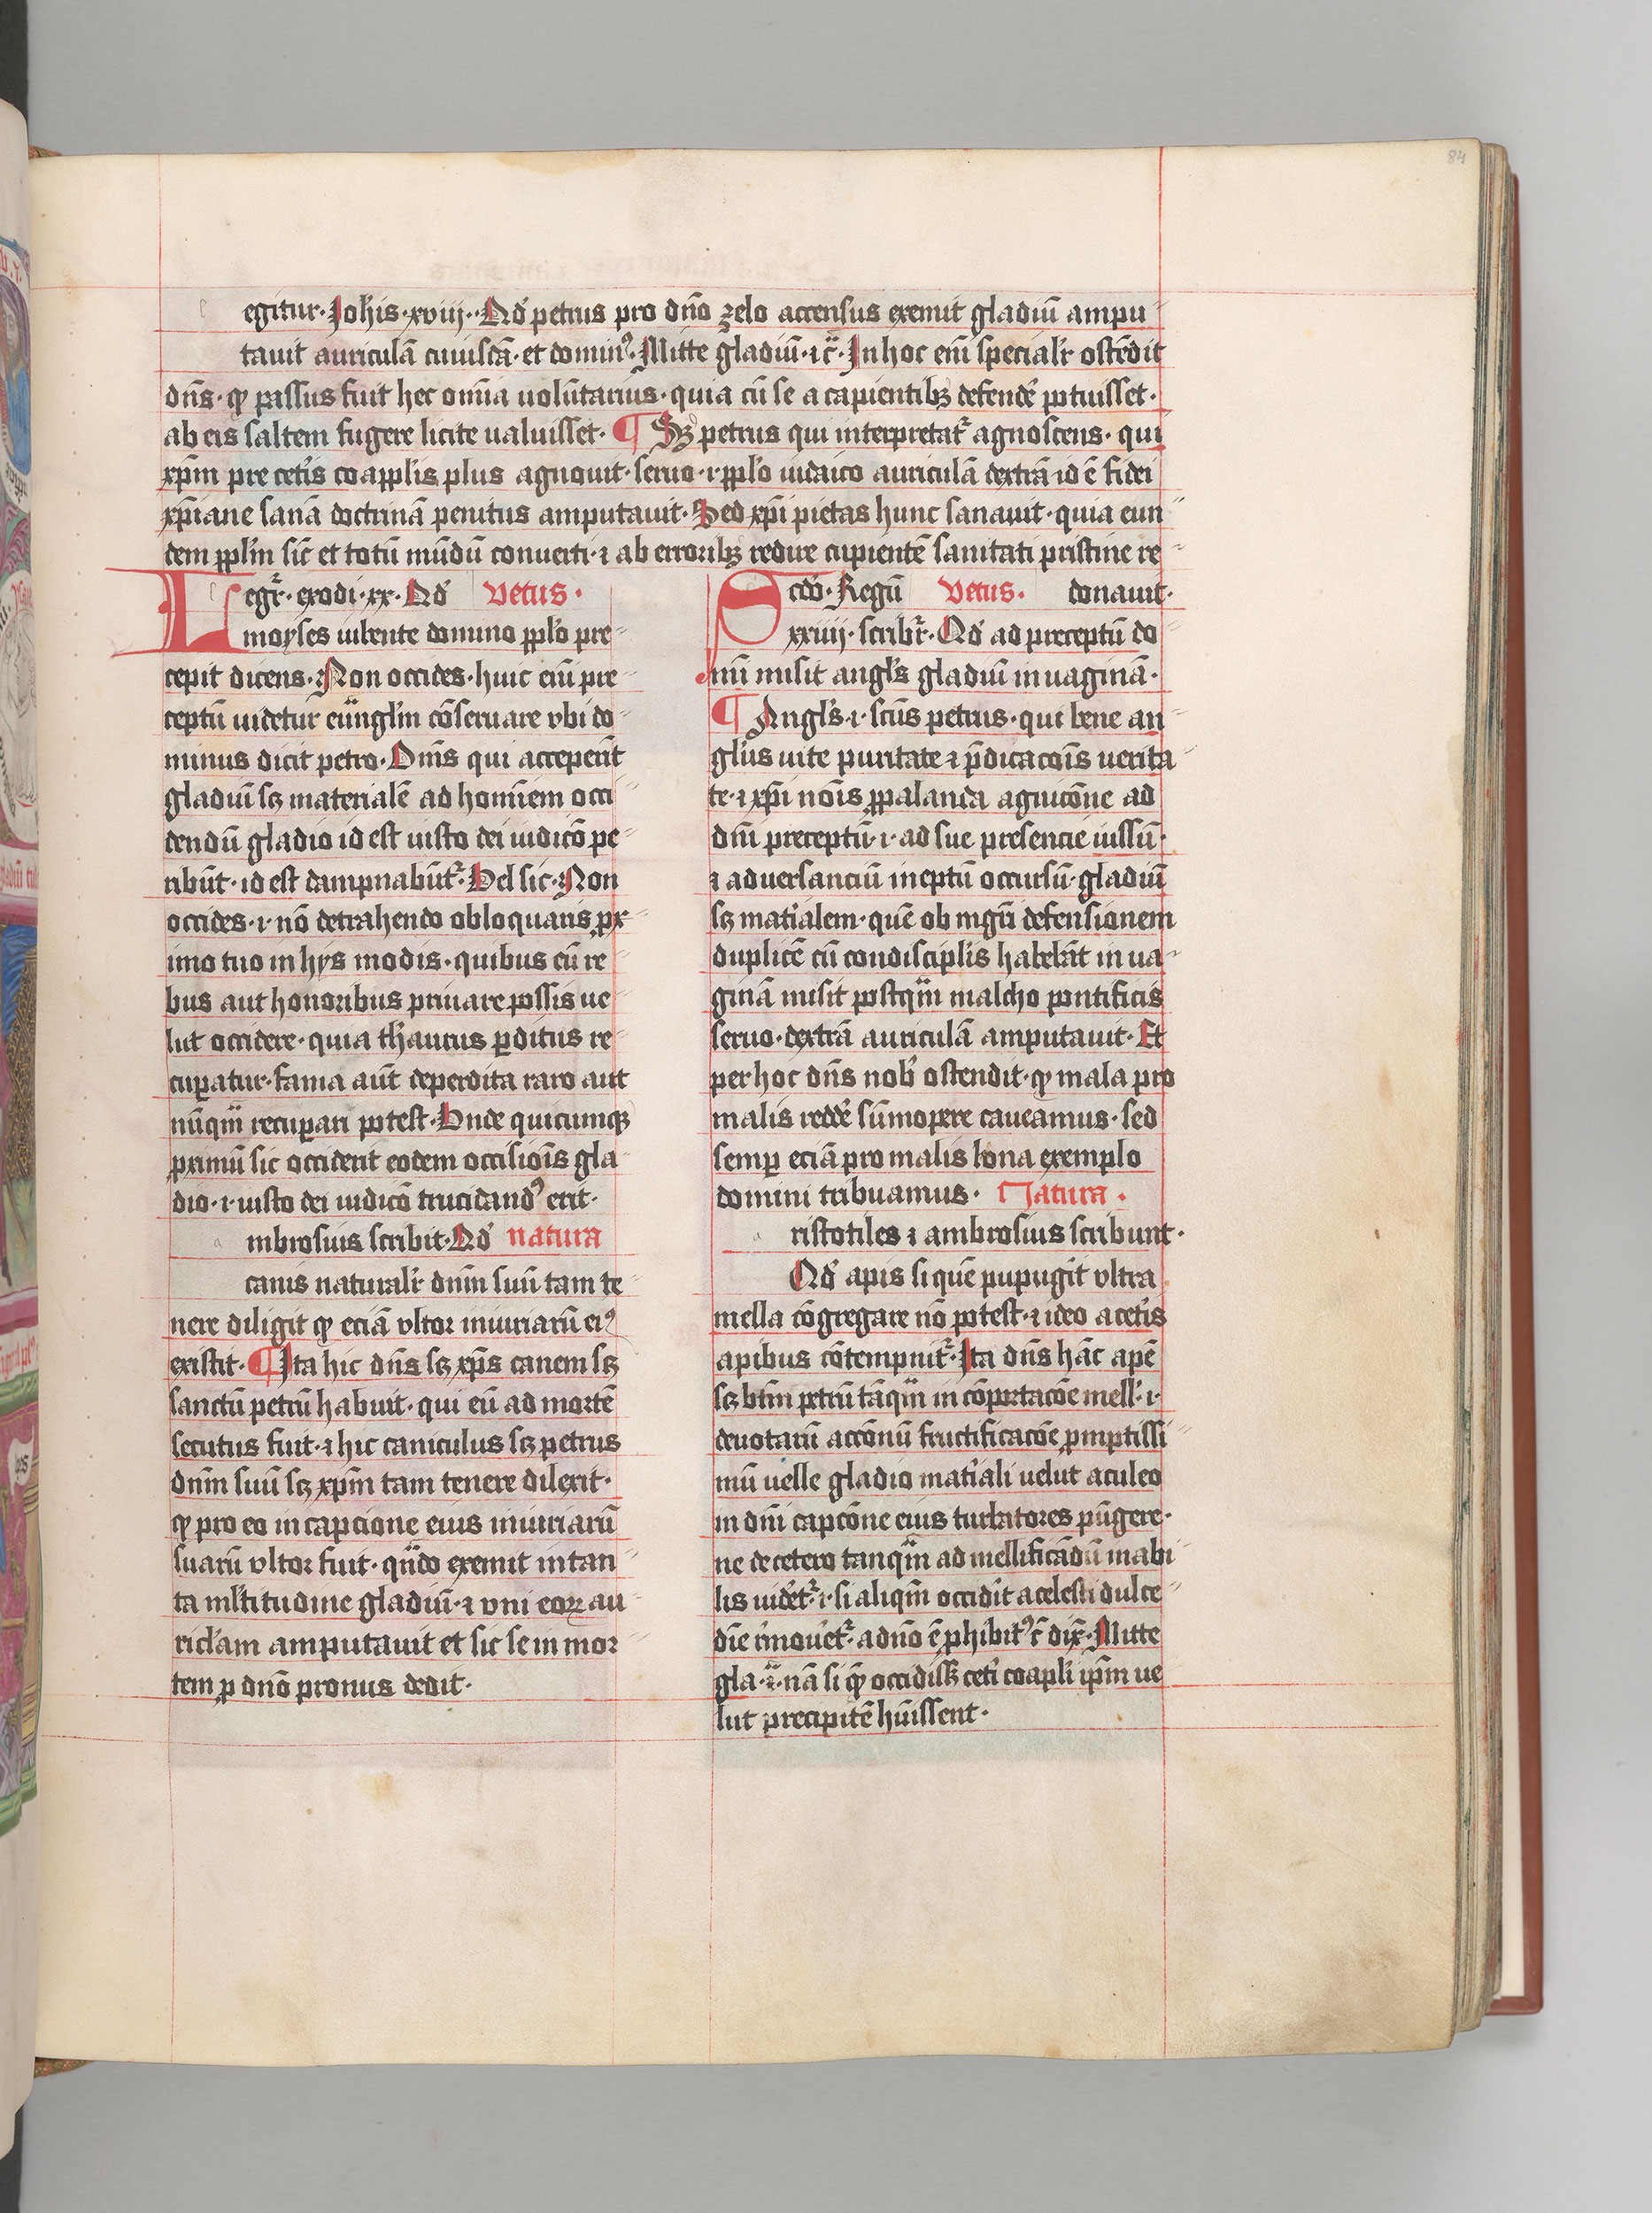 84
egitur · Joh̄is · xviij · Qd̕ petrus pro dn̄o zelo accensus exemit gladiū ampu
tauit auriculā cuiusdā · et domin⁹ · Mitte gladiū · ⁊c̄ · In hoc em̄ specialr̕ ostēdit
dn̄s · ꝙ passus fuit hec om̄ia uolūtarius · quia cū se a capientibꝫ defende̕ potuisset ·
ab eis saltem fugere licite ualuisset · ¶ Sꝫ petrus qui interpretat᷑ agnoscens · qui
xp̄m pre cet̕is coapp̄lis plus agnouit · seruo · i · pp̄lo iudaico auriculā dextrā id ē fidei
xp̄iane sanā doctrinā penitus amputauit · Sed xp̄i pietas hunc sanauit · quia eun
dem pp̄lm̄ sic̄ et totū mūdū conuerti · ⁊ ab erroribꝫ redire cupientē sanitati pristine re
donauit ·
Legr̄ · exodi · xx · Qd̕ vetus ·
moyses iubente domino pp̄lo pre
cepit dicens · Non occides · huic em̄ pre
ceptū uidetur euͣnglm̄ cōseruare vbi do
minus dicit petro · Om̄s qui acceperīt
gladiū sꝫ materialē ad hominem occi
dendū gladio id est iusto dei iudicō pe
ribūt · id est dampnabūt᷑ · Vel sic · Non
occides · i · nō detrahendo obloquaris ꝓx
imo tuo in hys modis · quibus eū re
bus aut honoribus priuare possis ue
lut occidere · quia th̄aurus ꝑditus re
cuꝑatur · fama aūt deperdita raro aut
nūqͣm recuꝑari potest · Vnde quicumqꝫ
ꝓximū sic occiderit eodem occisiōis gla
dio · i · iusto dei iudicō trucidand⁹ erit ·
a mbrosius scribit · Qd̕ natura
canis naturalr̕ dn̄m suū tam te
nere diligit ꝙ eciā vltor iniuriarū ei⁹
existit · ¶ Ita hic dn̄s sꝫ xp̄s canem sꝫ
sanctū petrū habuit · qui eū ad mortē
secutus fuit · ⁊ hic caniculus sꝫ petrus
dn̄m suū sꝫ xp̄m tam tenere dilexit ·
ꝙ pro eo in capcione eius iniuriarū
suarū vltor fuit · qn̄do exemit in tan
ta ml̄titudine gladiū · ⁊ vni eoꝝ au
ricl̕am amputauit et sic se in mor
tem ꝓ dn̄o pronus dedit ·
Scd̄o · Regū vetus ·
xxiiij · scribr̄ · Qd̕ ad preceptū do
mī misit angl̕s gladiū in uaginā ·
¶ Angl̕s · i · sctūs petrus · qui bene an
gl̕us uite puritate ⁊ p̄dicacōis uerita
te · ⁊ xp̄i nōis ꝓpalanda agnicōne ad
dn̄i preceptū · i · ad sue presencie iussū ·
⁊ aduersanciū ineptū occursū · gladiū
sꝫ mat̕ialem · quē ob mgr̄i defensionem
duplicē cū condiscipl̕is habebāt in ua
ginā misit postqͣm malcho pontificis
seruo · dextrā auriculā amputauit · Et
per hoc dn̄s nob̕ ostendit · ꝙ mala pro
malis redde̕ sūmopere caueamus · sed
semꝑ eciā pro malis bona exemplo
domini tribuamus · Natura ·
a ristotiles ⁊ ambrosius scribunt ·
Qd̕ apis si quē pupugit vltra
mella cōgregare nō potest · ⁊ ideo a cet̕is
apibus cōtempnit᷑ · Ita dn̄s hāc apē
sꝫ btm̄ petrū tāqͣm in cōportacōe mell̕ · i ·
deuotarū accōnū fructificacōe ꝓmptissi
mū uelle gladio mat̕iali uelut aculeo
in dn̄i capcōne eius turbatores pūgere ·
ne de cetero tanqͣm ad mellificādū inabi
lis uidet᷑ · i · si aliqm̄ occidīt a celesti dulce
die r̕mouet᷑ · a dn̄o ē ꝓhibit⁹ dix̄ · Mitte
gla · ⁊ · nā si occidissꝫ cet̕i coapl̕i ip̄m ue
lut precipitē hūissent ·